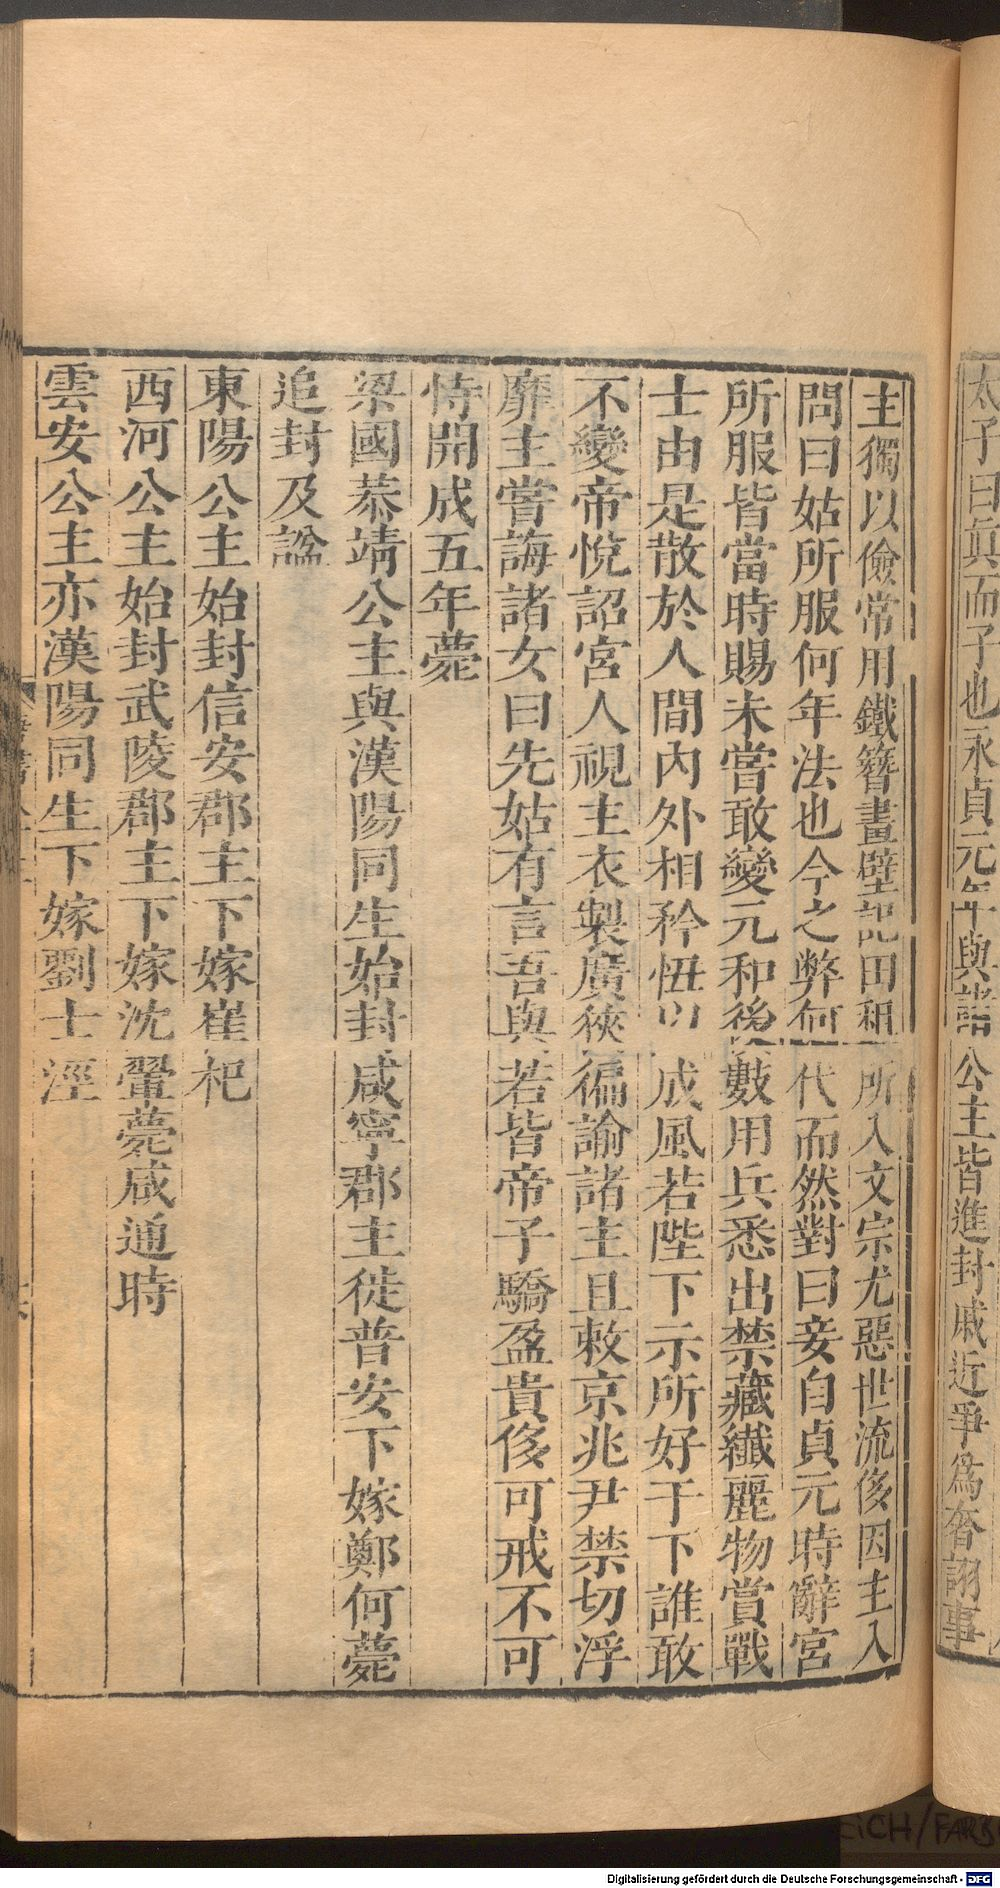 太子曰眞而子也永貞元年與諸公主皆進封戚近爭爲奢詡事
主獨以儉常用鐵簪畫壁記田租所入文宗尤惡世流侈因主入
問曰姑所服何年法也今之弊何代而然對曰妾自貞元時辭宮
所服皆當時賜未嘗敢變元和後數用兵悉出禁藏纎麗物賞戰
士由是散於人間內外相矜忸以成風若陛下示所好于下誰敢
不變帝悅詔宮人視主衣製廣狹徧諭諸主且敕京兆尹禁切浮
靡主嘗誨諸女曰先姑有言吾與若皆帝子驕盈貴侈可戒不可
恃開成五年薨
梁國恭靖公主與漢陽同生始封咸寧郡主徙普安下嫁鄭何薨
追封及諡
東陽公主始封信安郡主下嫁崔杞
西河公主始封武陵郡主下嫁沈翬薨咸通時
雲安公主亦漢陽同生下嫁劉士涇
Digitalisierung gefördert durch die Deutsche Forschungsgemeinschaft - DFG